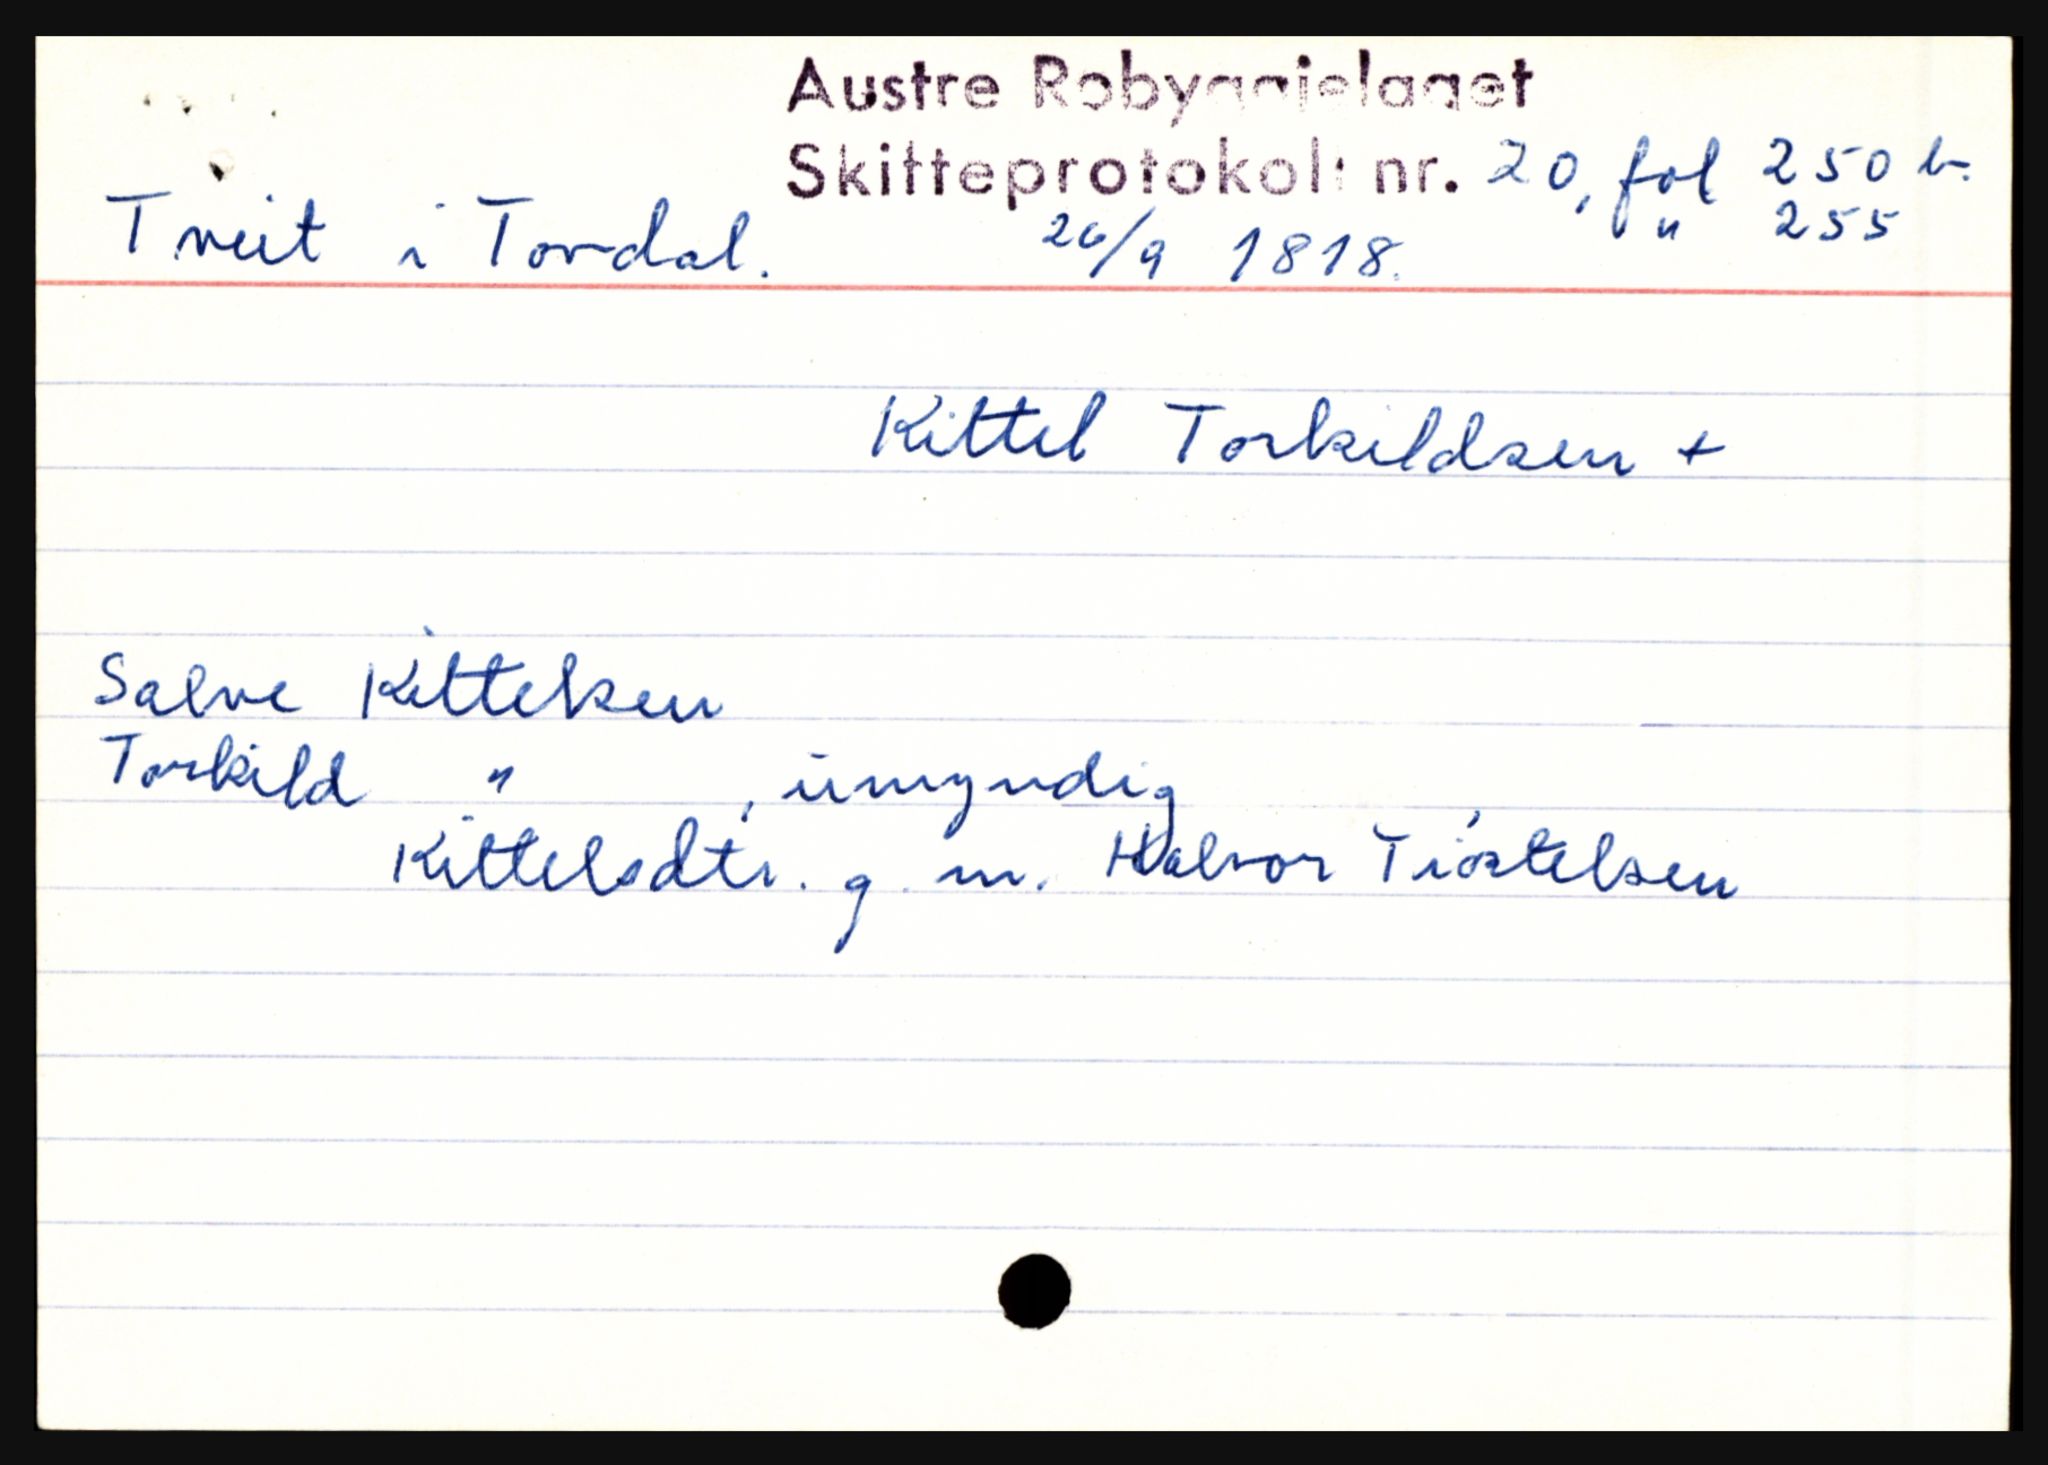 Austre Robyggjelaget
Skifteprotokoll nr. 20, fol 250 b.
Tveit i Tovdal. 26/9 1818. " 255
Kittel Torkildsen +
Salve Kittelsen
Torkild " , umyndig
Kittelsdtr. g. m. Halvor Tjøstelsen